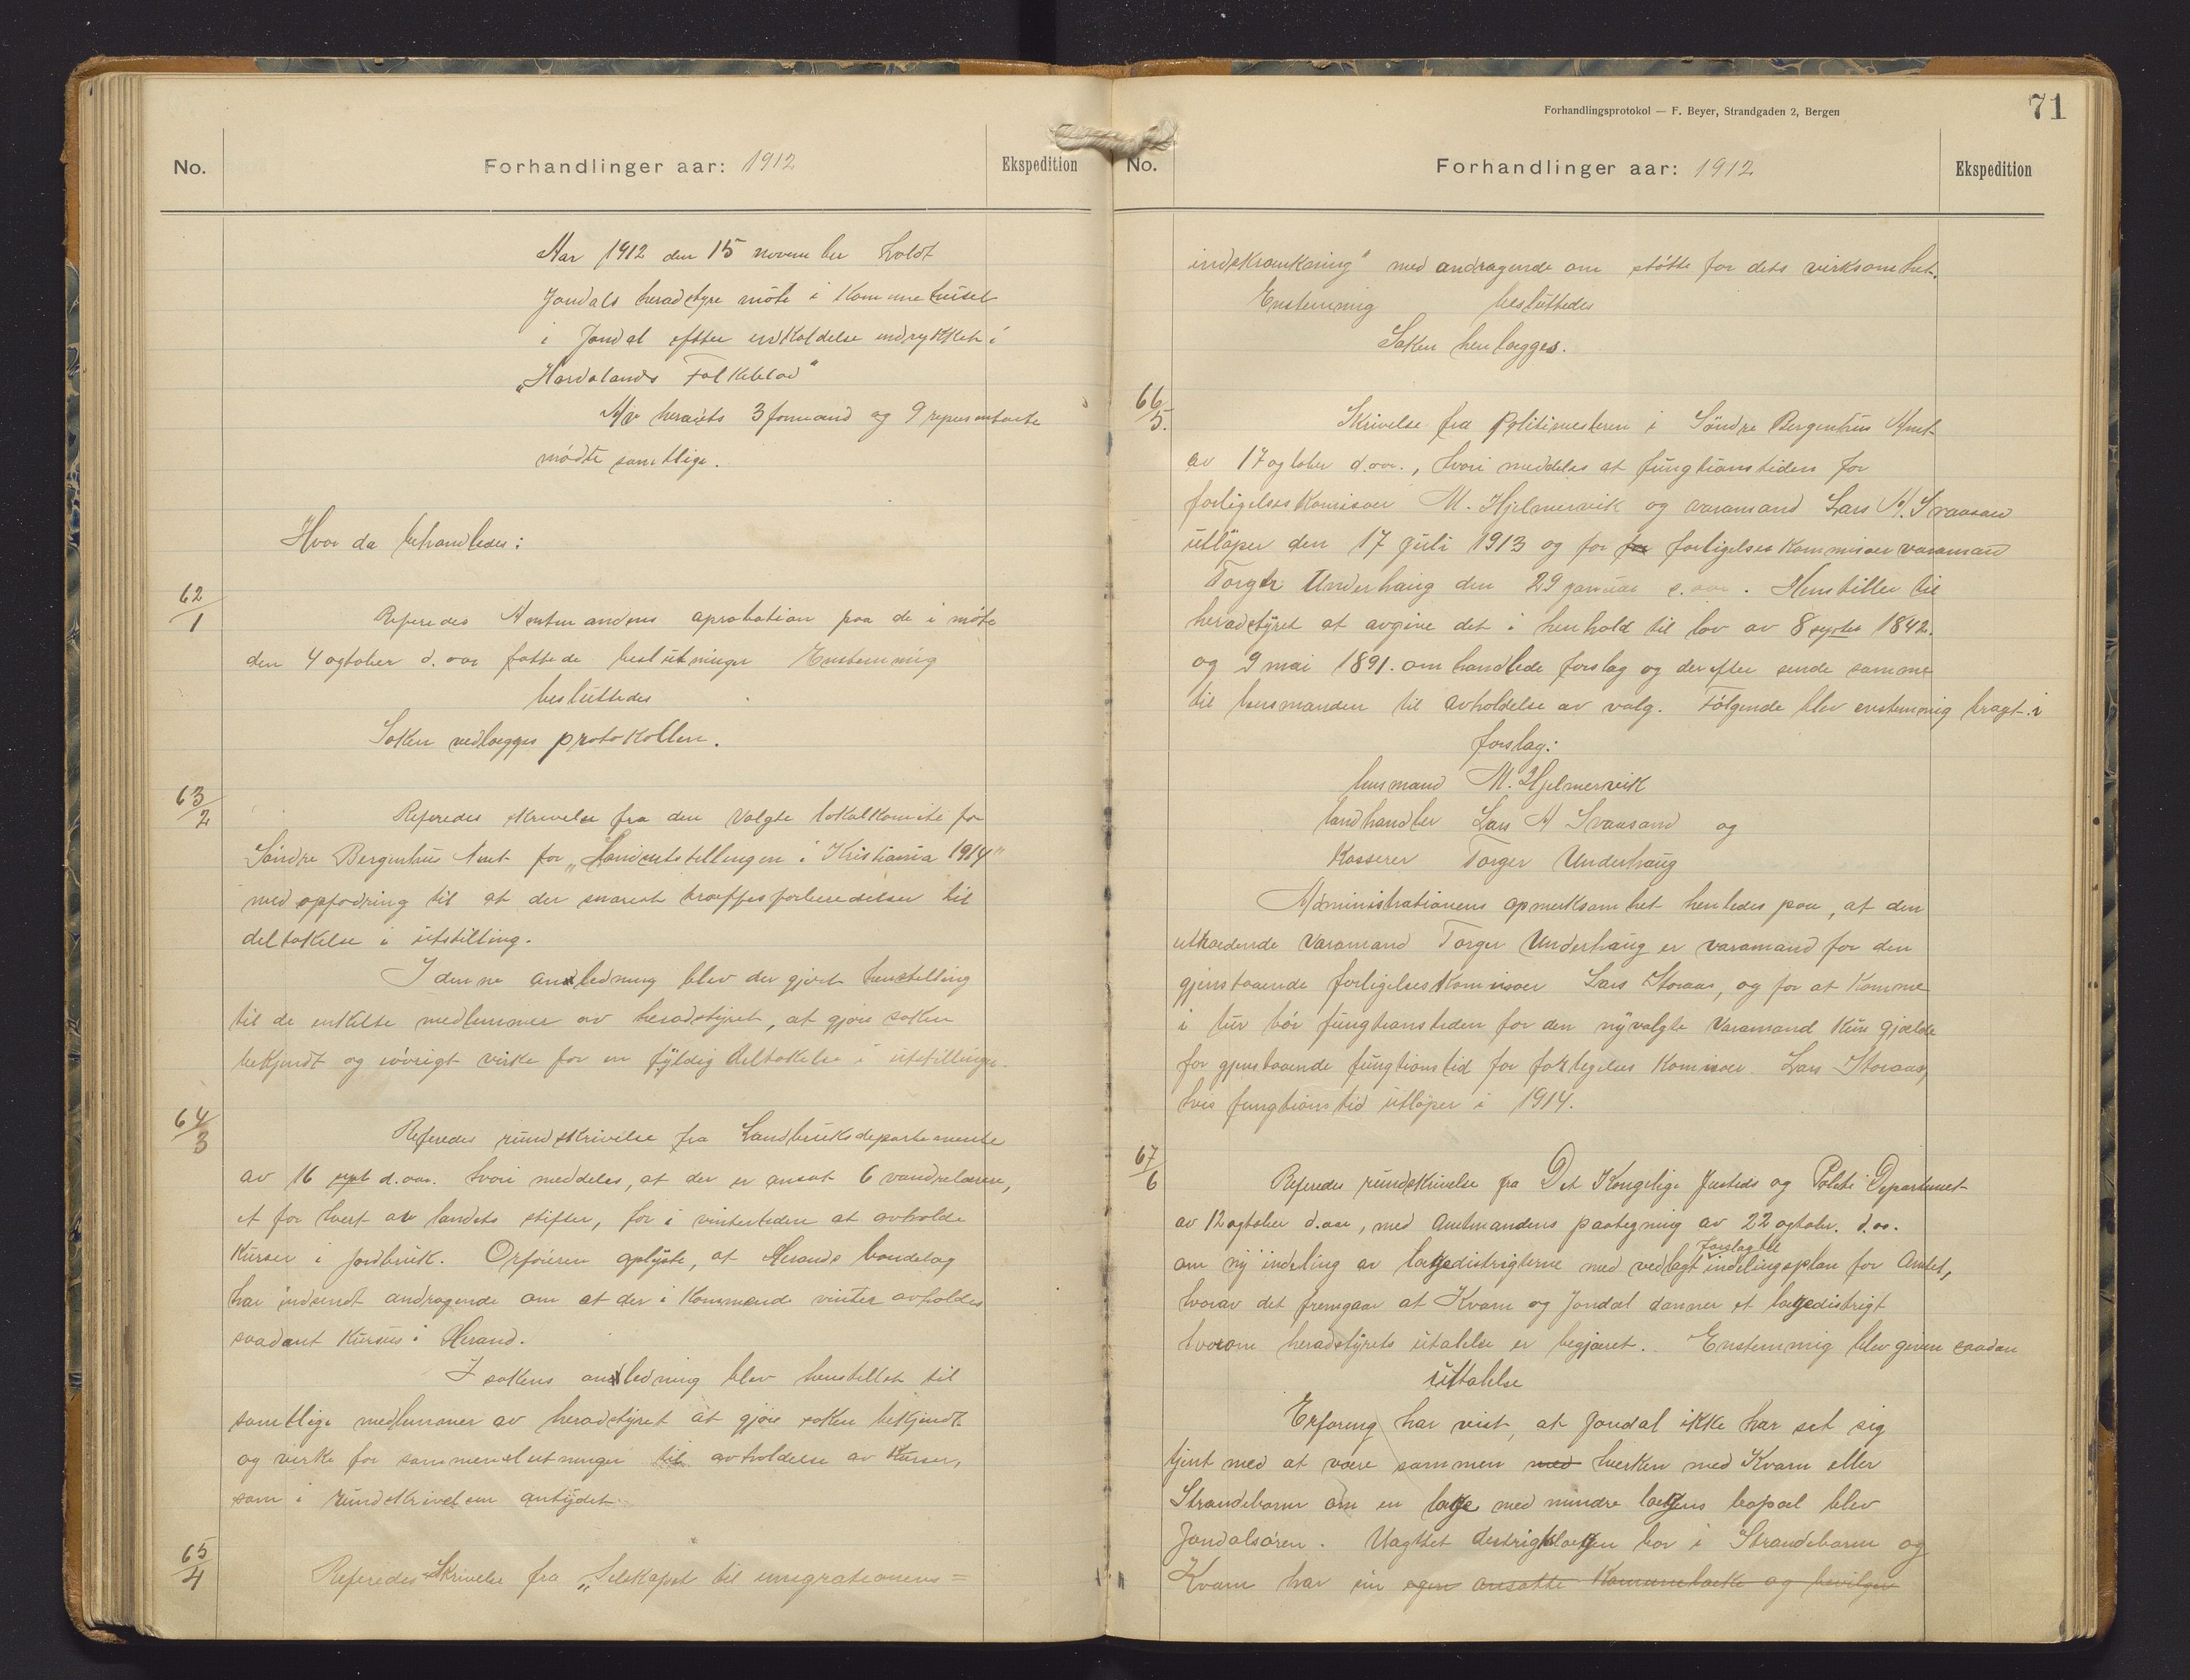 No.
Forhandlinger aar: 1912
Ekspedition
Aar 1912 den 15 november holdt
Jondals heradstyre møte i Kommunehuset
i Jondal efter indkaldelse indrykket i
„Hordalands Folkeblad"
Av heradets 3 formænd og 9 repræsentante
mødte samtlige.
Hvor da behandledes:
62/1
Referedes Amtmandens aprobation paa de i møte
den 4 ogtober d. aar fattede beslutninger Enstemmig
besluttedes
Saken vedlægges protokollen.
63/2
Referedes skrivelse fra den valgte lokalkomite for
Søndre Bergenhus Amt for „Landsutstillingen i Kristiania 1914"
med opfodring til at der snarest træffes forberedelser til
deltakelse i utstilling.
I denne andledning blev der gjort henstilling
til de enkelte medlemmer av heradstyret, at gjøre saken
bekjendt og iøvrigt virke for en fyldig deltakelse i utstillingen.
64/3
Referedes rundskrivelse fra Landbruksdepartemente
av 16 sept d. aar. hvori meddeles, at der er ansat 6 vandrelærere,
et for hvert av landets stifter, for i vintertiden at avholde
Kurser i jordbruk. Orføreren oplyste, at Herands bondelag
har indsendt andragende om at der i Kommende vinter avholdes
saadant Kursus i Herand.
I sakens andledning blev henstillet til
samtlige medlemmer av heradstyret at gjøre saken bekjendt
og virke for sammenslutninger til avholdelse av Kurser,
som i rundskrivelsen antydet.
65/4
Referedes Skrivelse fra „Selskapet til emigrationens=
Forhandlingsprotokol — F. Beyer, Strandgaden 2, Bergen
71
No.
Forhandlinger aar: 1912
Ekspedition
indskrænkning" med andragende om støtte for dets virksomhet.
Enstemmig besluttedes
Saken henlægges.
66/5.
Skrivelse fra Politimesteren i Søndre Bergenhus Amt
av 17 ogtober d. aar., hvori meddeles at fungtionstiden for
forligelseskomisær M. Hjelmervik og varamand Lars A. Svaasand
utløper den 17 juli 1913 og for for forligelses Kommisær varamand
Torger Underhaug den 29 januar s. aar. Henstiller til
heradstyret at avgive det i henhold til lov av 8 septbr 1842.
og 9 mai 1891. omhandlede forslag og derefter sende samme
til lensmanden til avholdelse av valg. Følgende blev enstemmig bragt i
forslag:
lensmand M. Hjelmervik
landhandler Lars A Svaasand og
Kasserer Torger Underhaug
Administrationens opmerksomhet henledes paa, at den
uttrædende Varamand Torger Underhaug er varamand for den
gjenstaaende forligelseskomisær Lars Storaas, og for at Komme
i tur bør fungtionstiden for den nyvalgte Varamand Kun gjælde
for gjenstaaende fungtionstid for forligelses Komisær Lars Storaas,
hvis fungtionstid utløper i 1914.
67/6
Referedes rundskrivelse fra Det Kongelige Justids og Politi Departement
av 12 ogtober d. aar, med Amtmandens paategning av 22 ogtobr. d. a.
forslag til
om ny indeling av lægedistrigterne med vedlagt indelingsplan for Amtet,
hvorav det fremgaar at Kvam og Jondal danner et lægedistrigt
hvorom heradstyrets utalelse er begjæret. Enstemmig blev given saadan
uttalelse
Erfaring har vist, at Jondal ikke har set sig
tjent med at være sammen med hverken med Kvam eller
Strandebarm om en læge med mindre lægens bopæl blev
Jondalsøren. Uagtet distrigtslægen bor i Strandebarm og
Kvam har sin egen ansatte Kommunelæke og bevilger